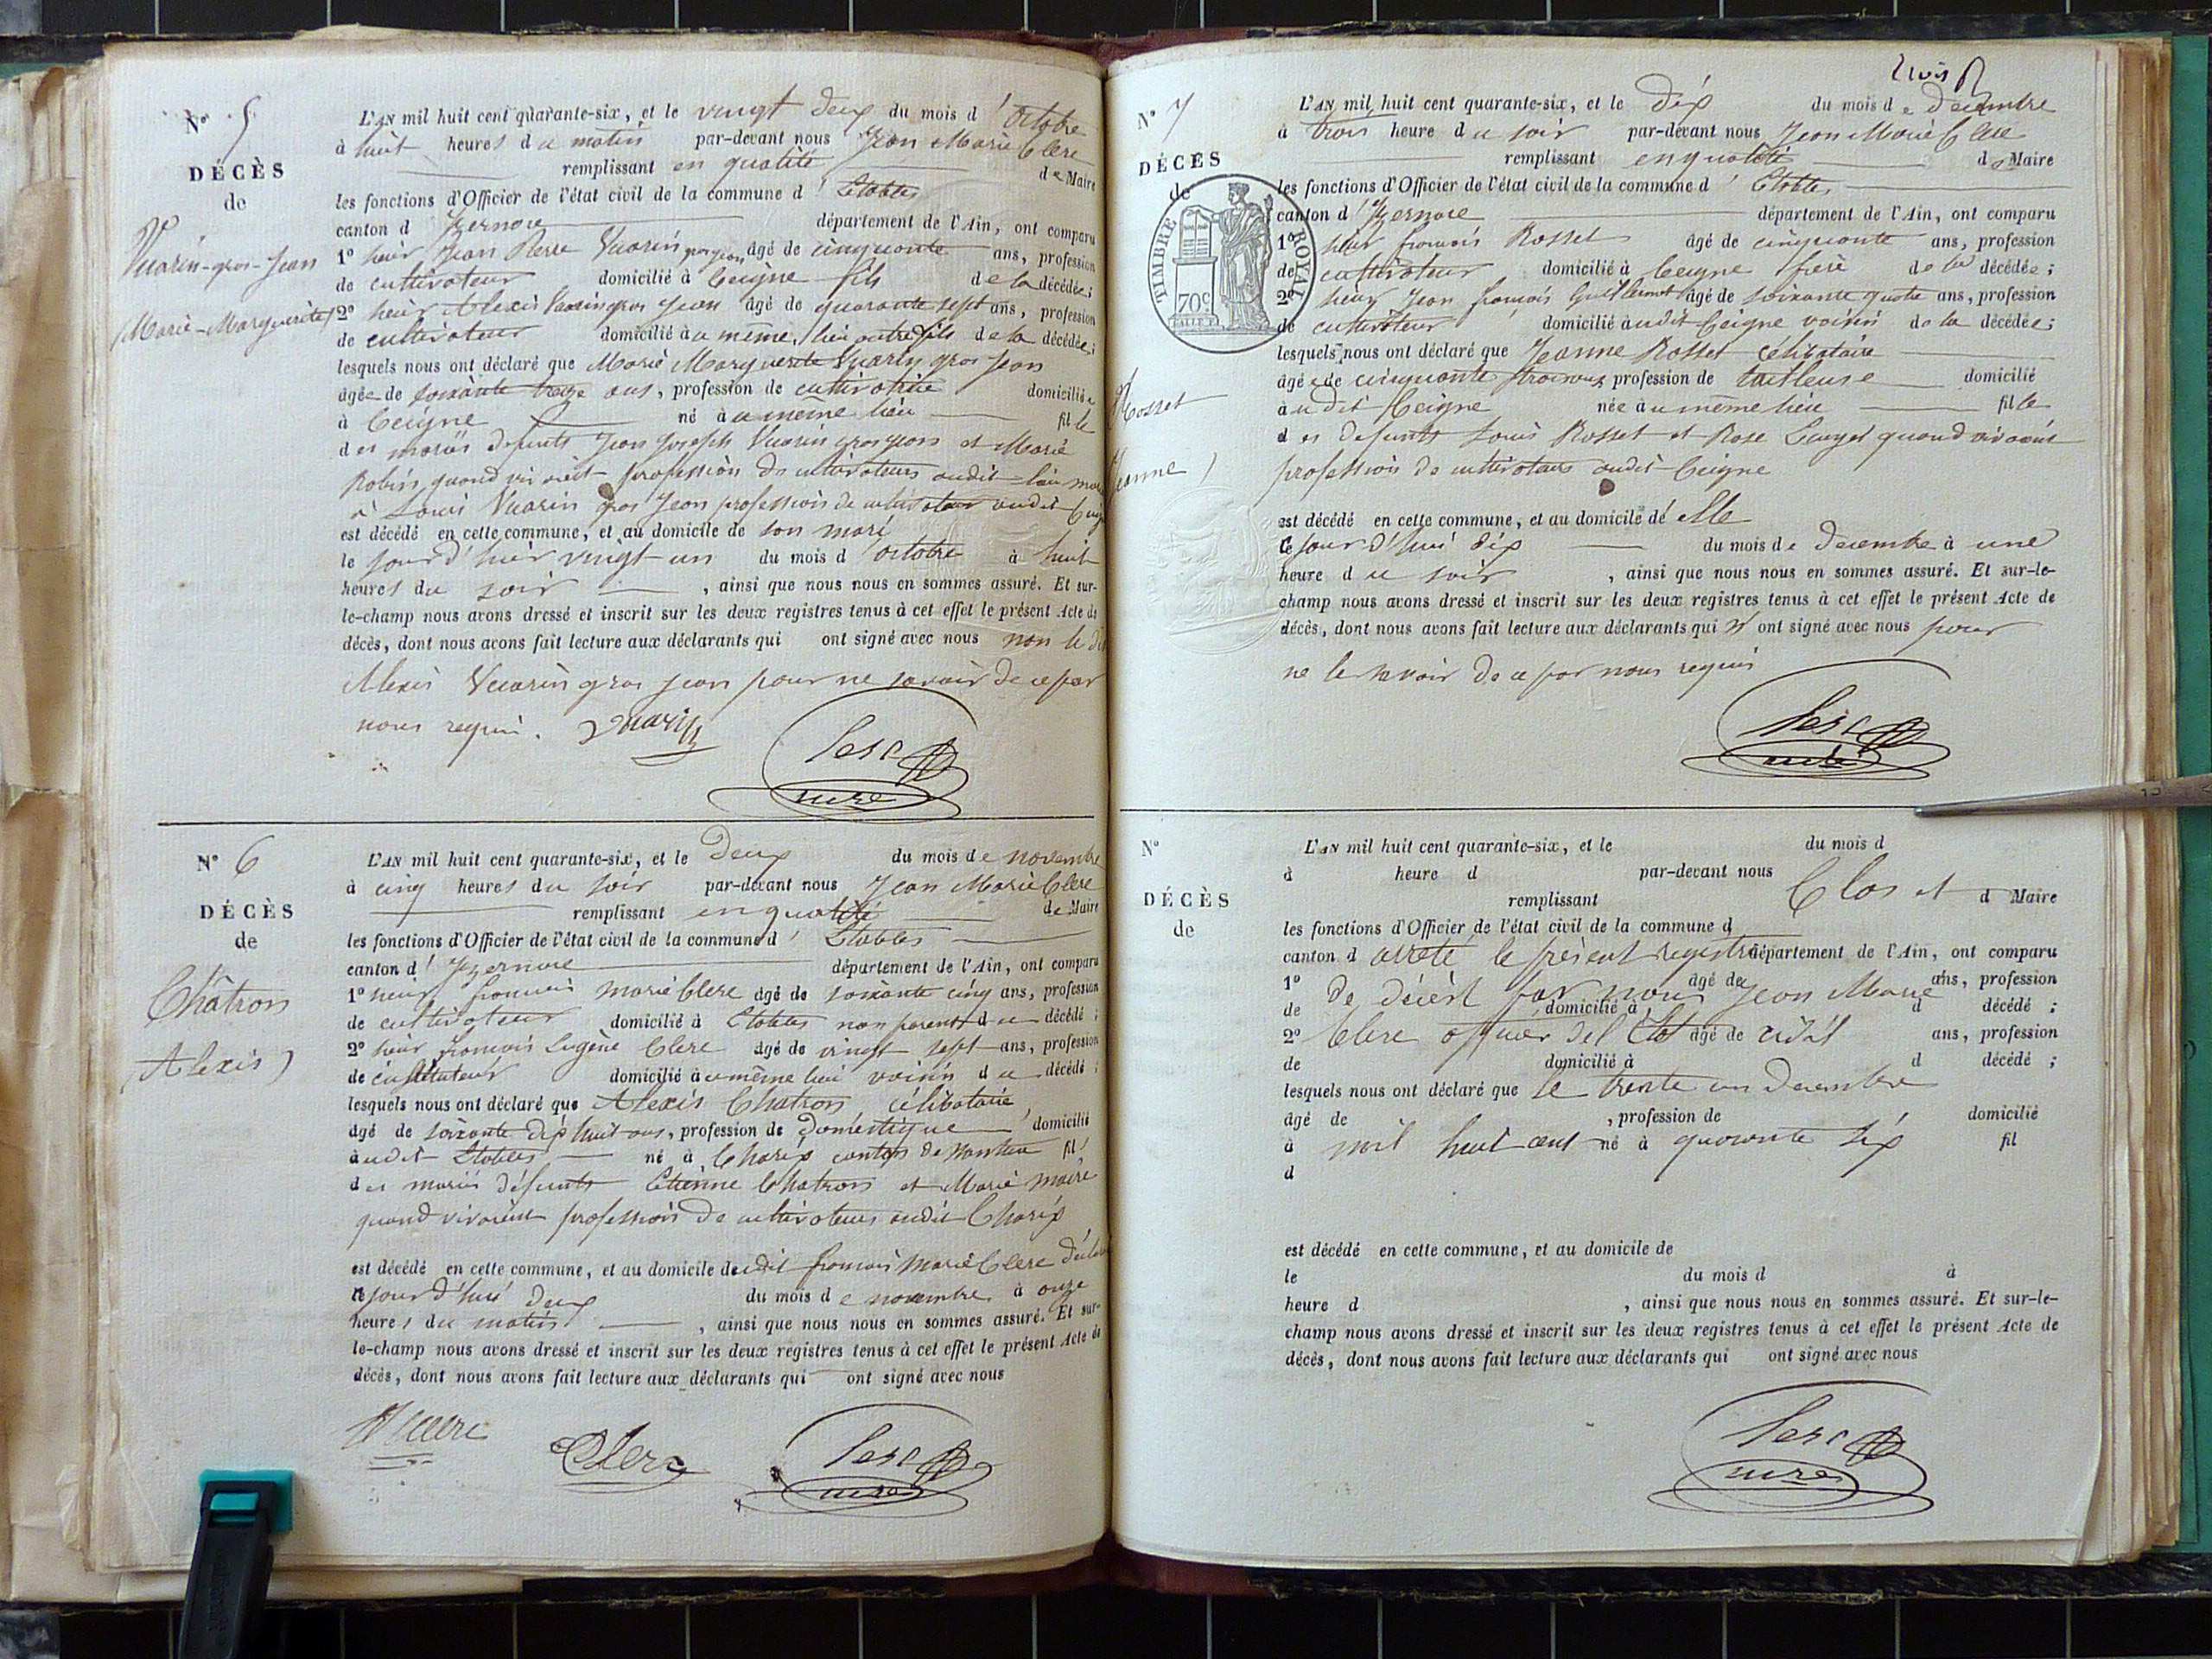 N° 5
DÉCÈS
de
Vuarin-gros-Jean
(Marie-Marguerite)
L'AN mil huit cent quarante-six, et le vingt deux du mois d'octobre
à huit heures du matin par-devant nous Jean Marie Clerc
remplissant en qualité de Maire
les fonctions d'Officier de l'état civil de la commune d' Etables
canton d'Izernore département de l'Ain, ont comparu
1° sieur Jean Pierre Vuarin gros jean âgé de cinquante ans, profession
de cultivateur domicilié à Ceigne fils de la décédée;
2° sieur Alexis Vuarin gros Jean âgé de quarante sept ans, profession
de cultivateur domicilié au même lieu autre fils de la décédée;
lesquels nous ont déclaré que Marie Marguerite Vuarin gros Jean
âgée de soixante treize ans, profession de cultivatrice domiciliée
à Ceigne né au même lieu fille
des mariés defunts Jean Joseph Vuarin gros jean et Marie
Robin quand vivaient profession de cultivateurs audit lieu
à Louis Vuarin gros Jean profession de cultivateur audit
est décédé en cette commune, et au domicile de son mari
le jour d'hier vingt un du mois d'octobre à huit
heures du soir, ainsi que nous nous en sommes assuré. Et sur-
le-champ nous avons dressé et inscrit sur les deux registres tenus à cet effet le présent Acte de
décès, dont nous avons fait lecture aux déclarants qui ont signé avec nous non le dit
Alexis Vuarin gros jean pour ne savoir de ce par
nous requis. Vuarin
Clerc
mre
N° 6
DÉCÈS
de
Châtron
(Alexis)
L'AN mil huit cent quarante-six, et le Deux du mois de novembre
à cinq heures du soir par-devant nous Jean Marie Clerc
remplissant en qualité de Maire
les fonctions d'Officier de l'état civil de la commune d' Etables
canton d'Izernore département de l'Ain, ont comparu
1° sieur francois marie Clerc âgé de soixante cinq ans, profession
de cultivateur domicilié à Etables non parent du décédé;
2° sieur francois Eugène Clerc âgé de vingt sept ans, profession
de instituteur domicilié au même lieu voisin du décédé;
lesquels nous ont déclaré que Alexis Chatron célibataire
âgé de soixante dix huit ans, profession de Domestique domicilié
audit Etables né à Charix canton de Nantua fils
des mariés défunts Etienne Chatron et Marie maire
quand vivaient profession de cultivateurs audit Charix
est décédé en cette commune, et au domicile dudit francois Marie Clerc
ce jour d'hui deux du mois de novembre à onze
heures du matin, ainsi que nous nous en sommes assuré. Et sur-
le-champ nous avons dressé et inscrit sur les deux registres tenus à cet effet le présent Acte de
décès, dont nous avons fait lecture aux déclarants qui ont signé avec nous
Clerc Clerc
mre
trois
N° 7
DÉCÈS
de
TIMBRE ROYAL
70c
Rosset
Jeanne)
L'AN mil huit cent quarante-six, et le dix du mois de decembre
à trois heure du soir par-devant nous Jean Marie Clerc
remplissant en qualité de Maire
les fonctions d'Officier de l'état civil de la commune d' Etables
canton d'Izernore département de l'Ain, ont comparu
1° sieur francois Rosset âgé de cinquante ans, profession
de cultivateur domicilié à Ceigne frere de la décédée;
2° sieur Jean francois Guillermet âgé de soixante quatre ans, profession
de cultivateur domicilié audit Ceigne voisin de la décédée;
lesquels nous ont déclaré que Jeanne Rosset célibataire
âgée de cinquante trois ans, profession de tailleuse domicilié
audit Ceigne née au même lieu fille
des defunts Louis Rosset et Rose quand vivaient
profession de cultivateurs audit Ceigne
est décédé en cette commune, et au domicile de elle
ce jour d'hui dix du mois de decembre à une
heure du soir, ainsi que nous nous en sommes assuré. Et sur-le-
champ nous avons dressé et inscrit sur les deux registres tenus à cet effet le présent Acte de
décès, dont nous avons fait lecture aux déclarants qui n'ont signé avec nous pour
ne le savoir de ce par nous requis
Clerc
mre
N°
DÉCÈS
de
L'AN mil huit cent quarante-six, et le du mois d
à heure d par-devant nous
remplissant Clos et d Maire
les fonctions d'Officier de l'état civil de la commune d
canton d arrete le présent registre département de l'Ain, ont comparu
1° De décès par nous Jean Marie âgé de ans, profession
de domicilié à d décédé;
2° Clerc officier del Etat civil âgé de ans, profession
de domicilié à d décédé;
lesquels nous ont déclaré que le trente un Decembre
âgé de, profession de domicilié
à mil huit cent né à quarante six fil
d
est décédé en cette commune, et au domicile de
le du mois d à
heure d, ainsi que nous nous en sommes assuré. Et sur-le-
champ nous avons dressé et inscrit sur les deux registres tenus à cet effet le présent Acte de
décès, dont nous avons fait lecture aux déclarants qui ont signé avec nous
Clerc
mre